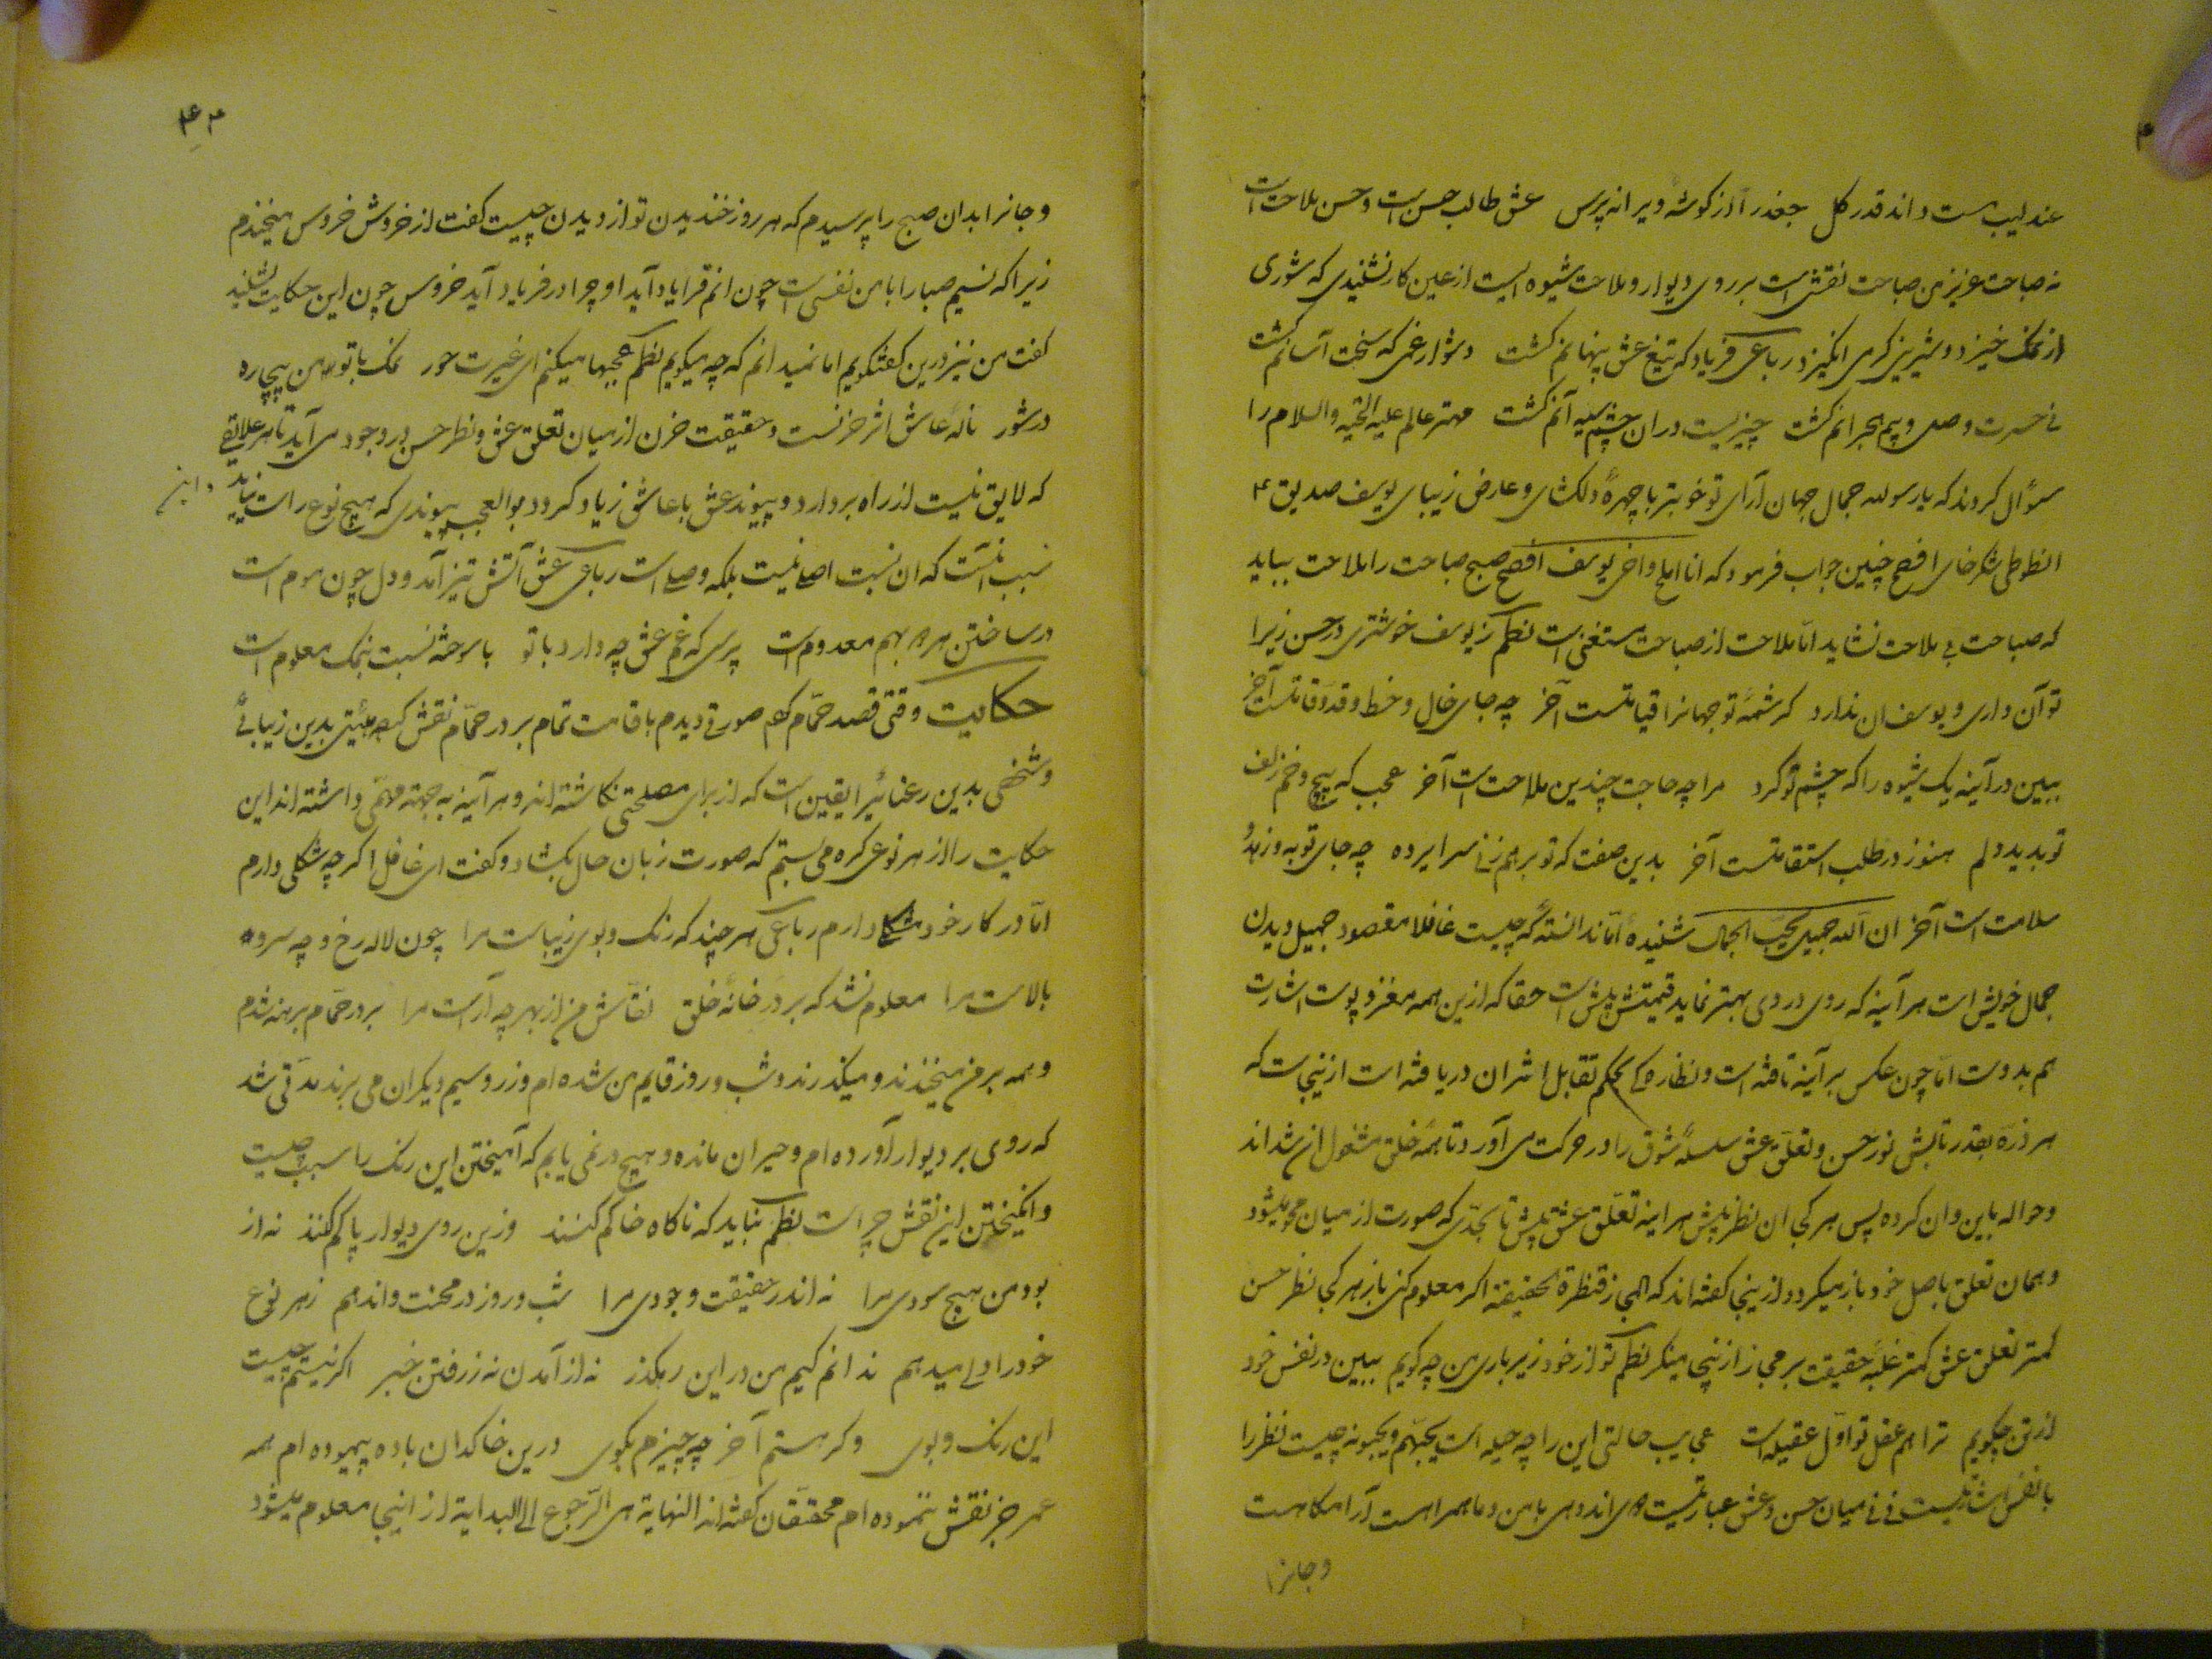 عندلیب مست داند قدر کل جغد را از کوشهٔ ویرانه پرس عشق طالب حسن است و حسن ملاحت است
نه صباحت عزیز من صباحت نقشی است بر روی دیوار و ملاحت شیوه ایست از عین کار نشنیدی که شوری
از نمک خیزد و شیرینی کرمی انگیزد رباعی فریاد که تیغ عشق پنهانم کشت دشوار غمی که سخت آسانم کشت
نی حسرت وصل و بیم هجرانم کشت چیزیست دران چشم سیه آنم کشت مهتر عالم علیه التحیه والسلام را
سؤال کردند که یا رسول الله جمال جهان آرای تو خوبتر یا چهرهٔ دلکشای و عارض زیبای یوسف صدیق ع
ان طوطی شکرخای افصح چنین جواب فرمود که انا املح و اخی یوسف افصح صبح صباحت را ملاحت بباید
که صباحت بی ملاحت نشاید اما ملاحت از صباحت مستغنی است نظم ز یوسف خوشتری در حسن زیرا
تو آن داری و یوسف ان ندارد کرشمهٔ تو جهانرا قیامتست آخر چه جای خال و خط و قد و قامتست آخر
ببین در آینه یک شیوه را که چشم تو کرد مرا چه حاجت چندین ملامت است آخر عجب که پیچ و خم زلف
تو بدید دلم هنوز در طلب استقامتست آخر بدین صفت که تو بر هم زنی سراپرده چه جای توبه و زهد و
سلامت است آخر ان الله جمیل یحب الجمال شنیدهٔ اما ندانستهٔ که چیست غافلا مقصود جمیل دیدن
جمال خویش است هر آینه که روی در وی بهتر نماید قیمتش بیش است حقا که ازین همه مغز و پوست اشارت
هم بدوست اما چون عکس بر آینه تافته است و نظاره کی بحکم تقابل اثر ان دریافته است ازینجاست که
هر ذره بقدر تابش نور حسن و تعلق عشق سلسلهٔ شوق را در حرکت می آورد تا همه خلق مشغول ان شداند
و حواله باین و ان کرده پس هر کجا ان نظر بیش هر اینه تعلق عشق بیش تا بحدی که صورت از میان محو میشود
و همان تعلق باصل خود باز میکردد ازینجا کفته اند که المجاز قنطرة الحقیقه اکر معلوم کنی باز هر کجا نظر حسن
کمتر تعلق عشق کمتر غلبهٔ حقیقت بر مجاز ازینجا مینکر نظم تو از خود زیر باری من چه کویم ببین در نفس خود
از تن چکویم ترا هم عقل تو اول عقیله است عجایب حالتی این را چه حیله است یحبهم و یحبونه چیست نظر را
با نفس اشارتیست فی فی میان حسن و عشق عبارتیست می اندوه با من و ما همراهست آرامگاهست
و جانرا
و جانرا بدان صبح را پرسیدم که هر روز خندیدن تو از دیدن چیست کفت از خروش خروس میخندم
زیرا که نسیم صبا را با من نفسی است چون انم فرا یاد آید او چرا در فریاد آید خروس چون این حکایت بشنید
کفت من نیز درین کفتکویم اما نمیدانم که چه میکویم نظم عجبها میکنم ای غیرت حور نمک با تو و من بیچاره
در شور نالهٔ عاشق اثر حزنست و حقیقت حزن از میان تعلق عشق و نظر حسن در وجود می آید تا هر علایقی
که لایق نیست از راه بردارد و پیوند عشق با عاشق زیاد کردد بوالعجب پیوندی که هیچ نوع راست نیاید و این
سبب انست که ان نسبت اصلی نیست بلکه وصلی است رباعی عشق آتش تیز آمد و دل چون موم است
در ساختن هر دو بهم معدوم است پرسی که غم عشق چه دارد با تو با سوخته نسبت نمک معلوم است
حکایت وقتی قصد حمام کردم صورتی دیدم با قامت تمام بر در حمام نقش کرده هیئتی بدین زیبائی
و شخصی بدین رعنائی را یقین است که از برای مصلحتی نکاشته اند و هر آینه به جهة مهمی داشته اند این
حکایت را از هر نوعی کره می بستم که صورت زبان حال بکشاد و کفت ای غافل اکر چه شکلی دارم
اما در کار خود مشکلی دارم رباعی هر چند که رنک و بوی زیباست مرا چون لاله رخ و چو سرو
بالاست مرا معلوم نشد که بر در خانهٔ خلق نقاش من از بهر چه آراست مرا بر در حمام برهنه شدم
و همه بر من میخندند و میکذرند و شب و روز قایم من شده ام و زر و سیم دیکران می برند مدتی شد
که روی بر دیوار آورده ام و حیران مانده و هیچ در نمی یابم که آمیختن این رنک را سبب چیست
و انکیختن این نقش چراست نظم نباید که ناکاه خاکم کنند وزین روی دیوار پاکم کنند نه از
بود من هیچ سودی مرا نه اندر حقیقت وجودی مرا شب و روز در محنت و اندهم ز هر نوع
خود را دلی میدهم ندانم کیم من در این رهکذر نه از آمدن نه ز رفتن خبر اکر نیستم چیست
این رنک و بوی وکر هستم آخر چه چیزم بکوی درین خاکدان باده پیموده ام همه
عمر جز نقش ننموده ام محققان کفته اند النهایة هی الرجوع الی البدایة از اینجا معلوم میشود